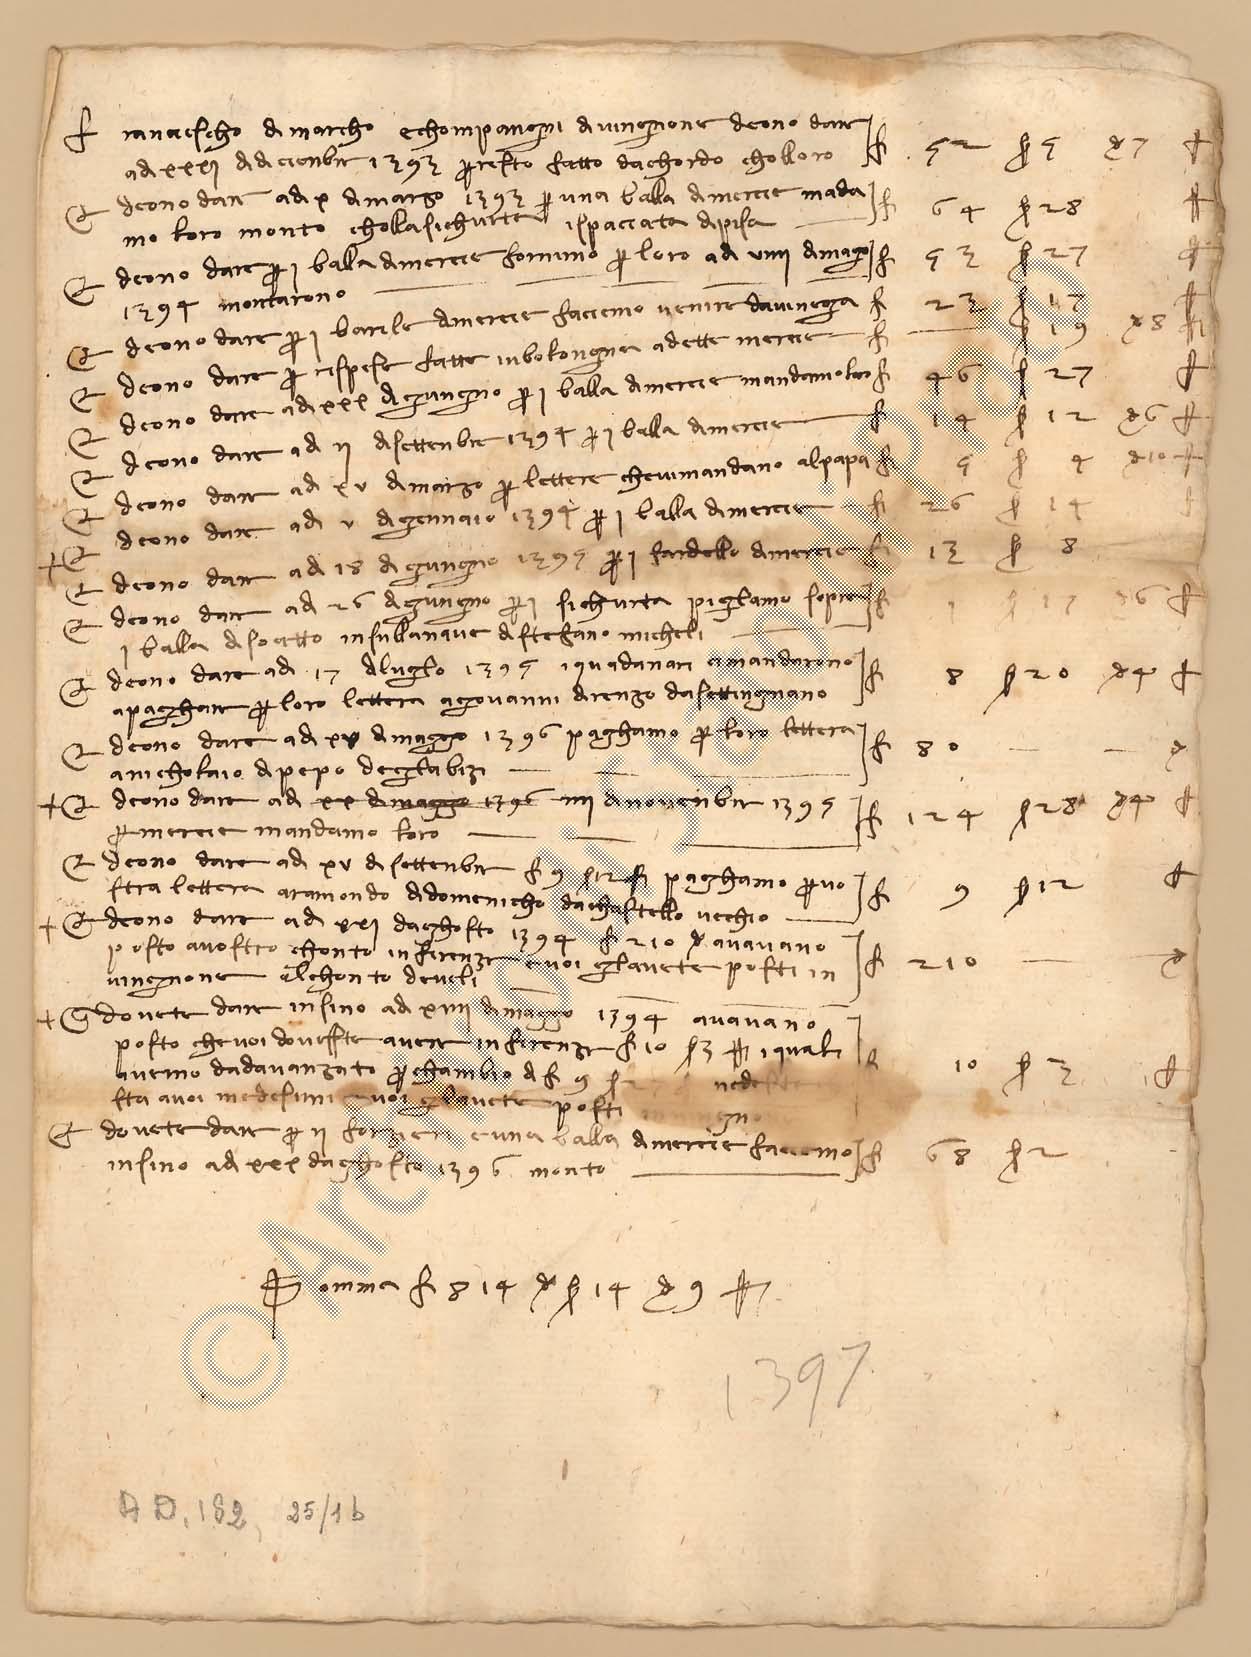 Francescho di marcho e chompangni di vingnone deono dare
a dì xxxi di dicienbre 1393 per resto fatto dachordo cholloro f. 52 s 5 d 7
E deono dare a dì x di marzo 1393 per una balla di mercie manda
mo loro monto cholla sichurta ispacciata di pisa f 64 s 28
E deono dare per i balla di mercie fornimo per loro a dì viiii di magio f 53 s 27
1394 montarono
E deono dare per i barile di mercie faciemo venire da vinegia f 23 s 17
E deono dare per ispese fatte in bolongna a dette mercie f — s 19 d 8
E deono dare a dì xxx di giungno per i balla di mercie mandamo loro f 46 s 27
E deono dare a dì ii di settenbre 1394 per i balla di mercie f 14 s 12 d 6
E deono dare a dì xv di marzo per lettere che mandano al papa f 5 s 4 d 10
E deono dare a dì v di gennaio 1394 per i balla di mercie f 26 s 14
+ E deono dare a dì 18 di giungno 1395 per i fardello di mercie f 13 s 8
E deono dare a dì 26 di giungno per i sichurta pigliamo sopra f 1 s 17 d 6
i balla di in sulla nave di stefano micheli
E deono dare a dì 17 di luglo 1395 i qua danari ci mandarono f 8 s 20 d 4
a paghare per loro lettera a giovanni di renzo da settingnano
E deono dare a dì xv di maggo 1396 paghamo per loro lettera f 80 — —
a nicholaio di pepo degl albizi
+ E deono dare a dì xx di maggo 1396 iiii di novenbre 1395 f 124 s 28 d 4
per mercie mandamo loro
E deono dare a dì xv di settenbre f 9 s 12 paghamo per vo f 9 s 12
stra lettera a ramondo di domenicho da chastello vechio
+ E deono dare a dì xxi d aghosto 1394 f 210 d avavano
posto a vostro chonto in firenze e voi gl avete posti in f 210 —
vingnone al chonto di veli
+ E dovete dare insino a dì xiiii di maggo 1394 avavano
posto che voi dovesste avere in firenze f 10 s 3 i quali
avemo d avanzato per chambio di f 9 s f 10 s 3
sta a voi medesimi e voi gl avete posti
E dovete dare per ii forzieri e una balla di mercie faciemo f 68 s 2
insino a dì xxx d aghosto 1396 monto
Somma f 814 d s 14 d 9
1397
A D. 182, 25/1b
© Archivio di Stato di Prato